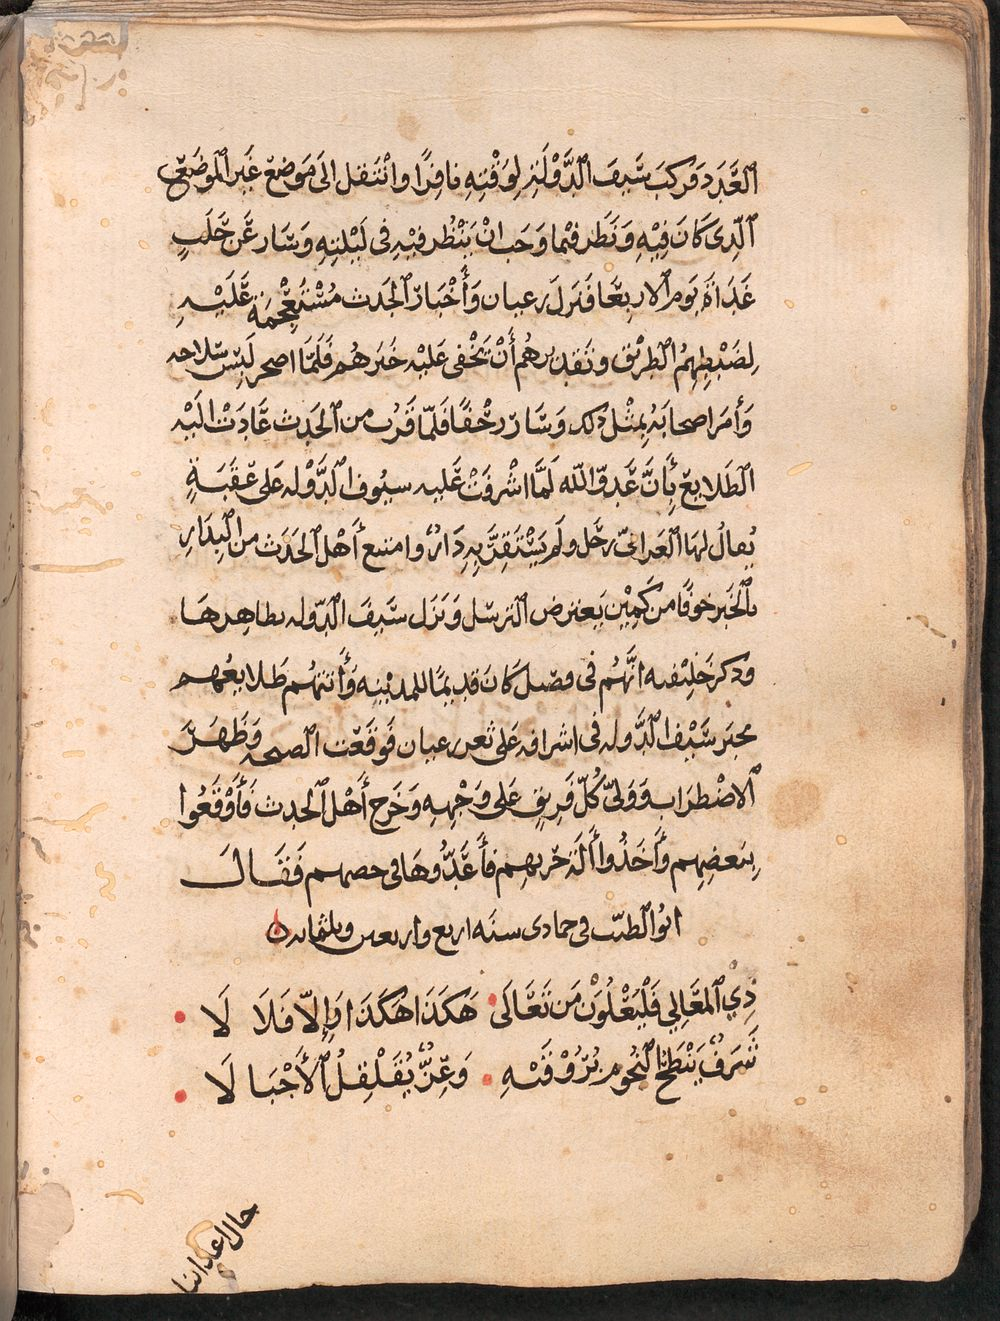 العَدَد فركبَ سَيف الدَّوْلَةِ لِوَقْتِهِ نافِرًا وانْتَقل الى مَوضع غَير الموضع
الّذي كَانَ فِيْهِ وَنَظَر فيما وَجَب انْ يَنْظُر فيْهِ في لَيْلتِهِ وَسَار عَن حَلَبٍ
غَدَاةَ يَوم الاربِعَا فنزل رعبان وَأَخْبَار الحَدث مُسْتَعْجِمَة عَلَيْهِ
لِضَبْطِهِمُ الطريْق وتقديرهم أَنْ يَخْفى عَليْه خَبَرهُم فَلَمّا اصحر لَبِسَ سلاحه
وَأَمَر اصحابَهُ بِمثْل ذلك وَسَار زحْفًا فَلَمّا قَرُب من الحَدث عَادَتْ اليْه
الطَلايعُ بِأَنَّ عَدوّ اللّه لَمَّا اشْرفَتْ عَليه سيُوف الدَّوْله عَلى عَقَبَةٍ
يُقالُ لهَا العَبراني رحَل ولم يَسْتَقِرَّ بِهِ دَارٌ وامتنع أَهْل الحَدَث من البِدَارِ
بالخَبر خوفًا من كَمِيْن يَعترض الرسل وَنَزَل سَيفَ الدّوله بظاهِرهَا
وذكر خَلِيْفته انَّهُم في فصيل كَانَ قديمًا للمديْنه وَأَتتهُم طَلايعُهم
بخبر سَيْف الدَّوله في اشرافه عَلى ثغر رعبان فَوقعَت الصيحه وَظَهَرَ
الاضْطرَاب وَوَلّى كُلّ فَرِيقٍ عَلى وَجْهِهِ وَخَرج أَهْل الحدث فَأَوْقَعُوا
بِبَعضِهم وَأَخَذُوا أَلَة حَربهم فأَعَدُّوهَا في حصنهم فَقَالَ
ابُو الطيّب في جمادى سنَه اربع واربعين وثلثمايه
ذِي المعَالِي فَلْيَعْلُوَنْ مَن تَعَالَى هَكَذَا هَكَذَا وَإِلّا فَلَا لَا
شَرَفٌ يَنْطَحُ النُجُومَ بِرَوْقَيْهِ وَعِزٌّ يُقَلْقِلُ الأَجْبَا لَا
حال اعدائنا